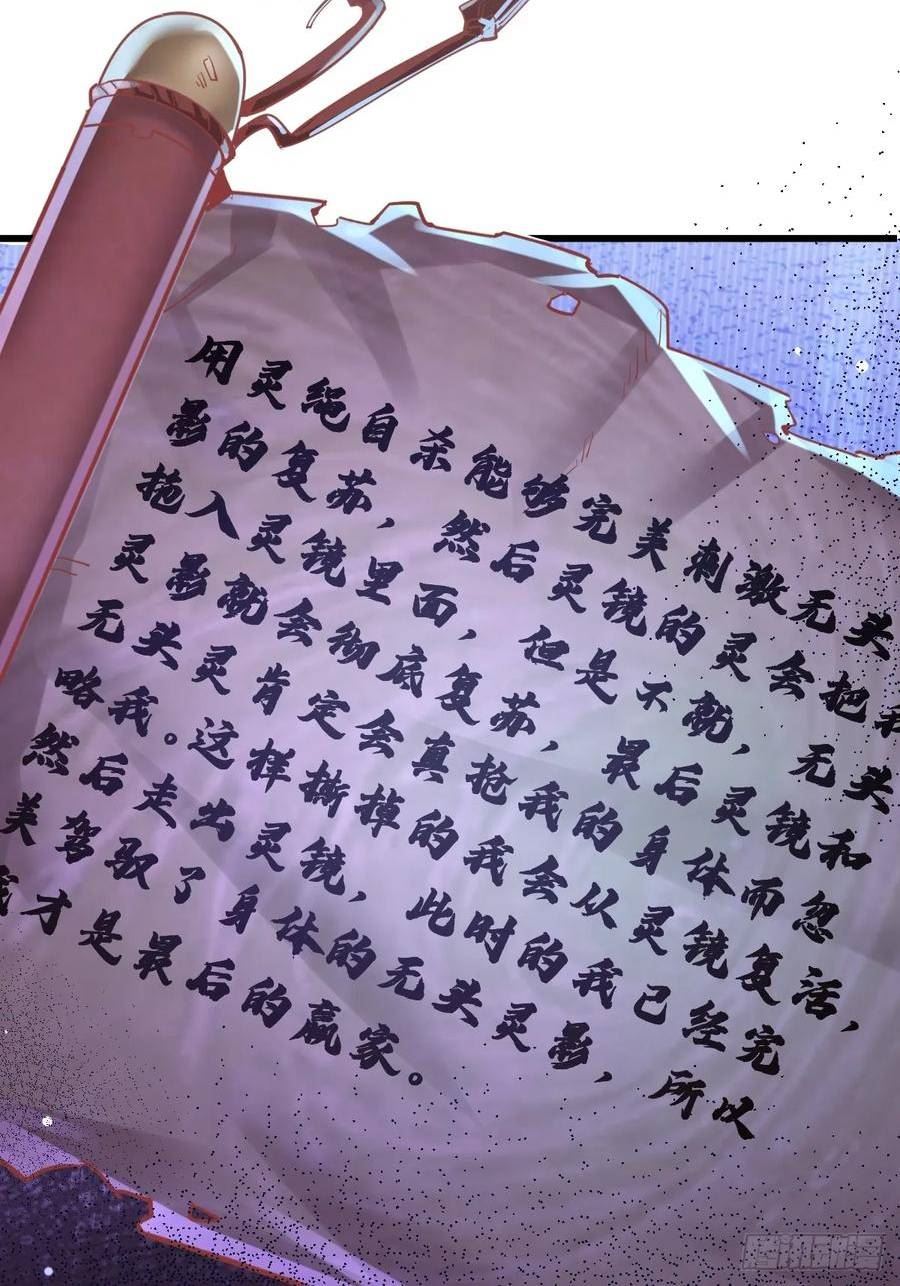 用灵绳自杀能够完美刺激无头
影的复苏，然后灵镜的灵会把我
拖入灵镜里面，但是不就，无头
灵影就会彻底复苏，最后灵镜和
无头灵肯定会真抢我的身体而忽
略我。这样撕掉的我会从灵镜复活，
然后走出灵镜，此时的我已经完
美驾驭了身体的无头灵影，所以
我才是最后的赢家。